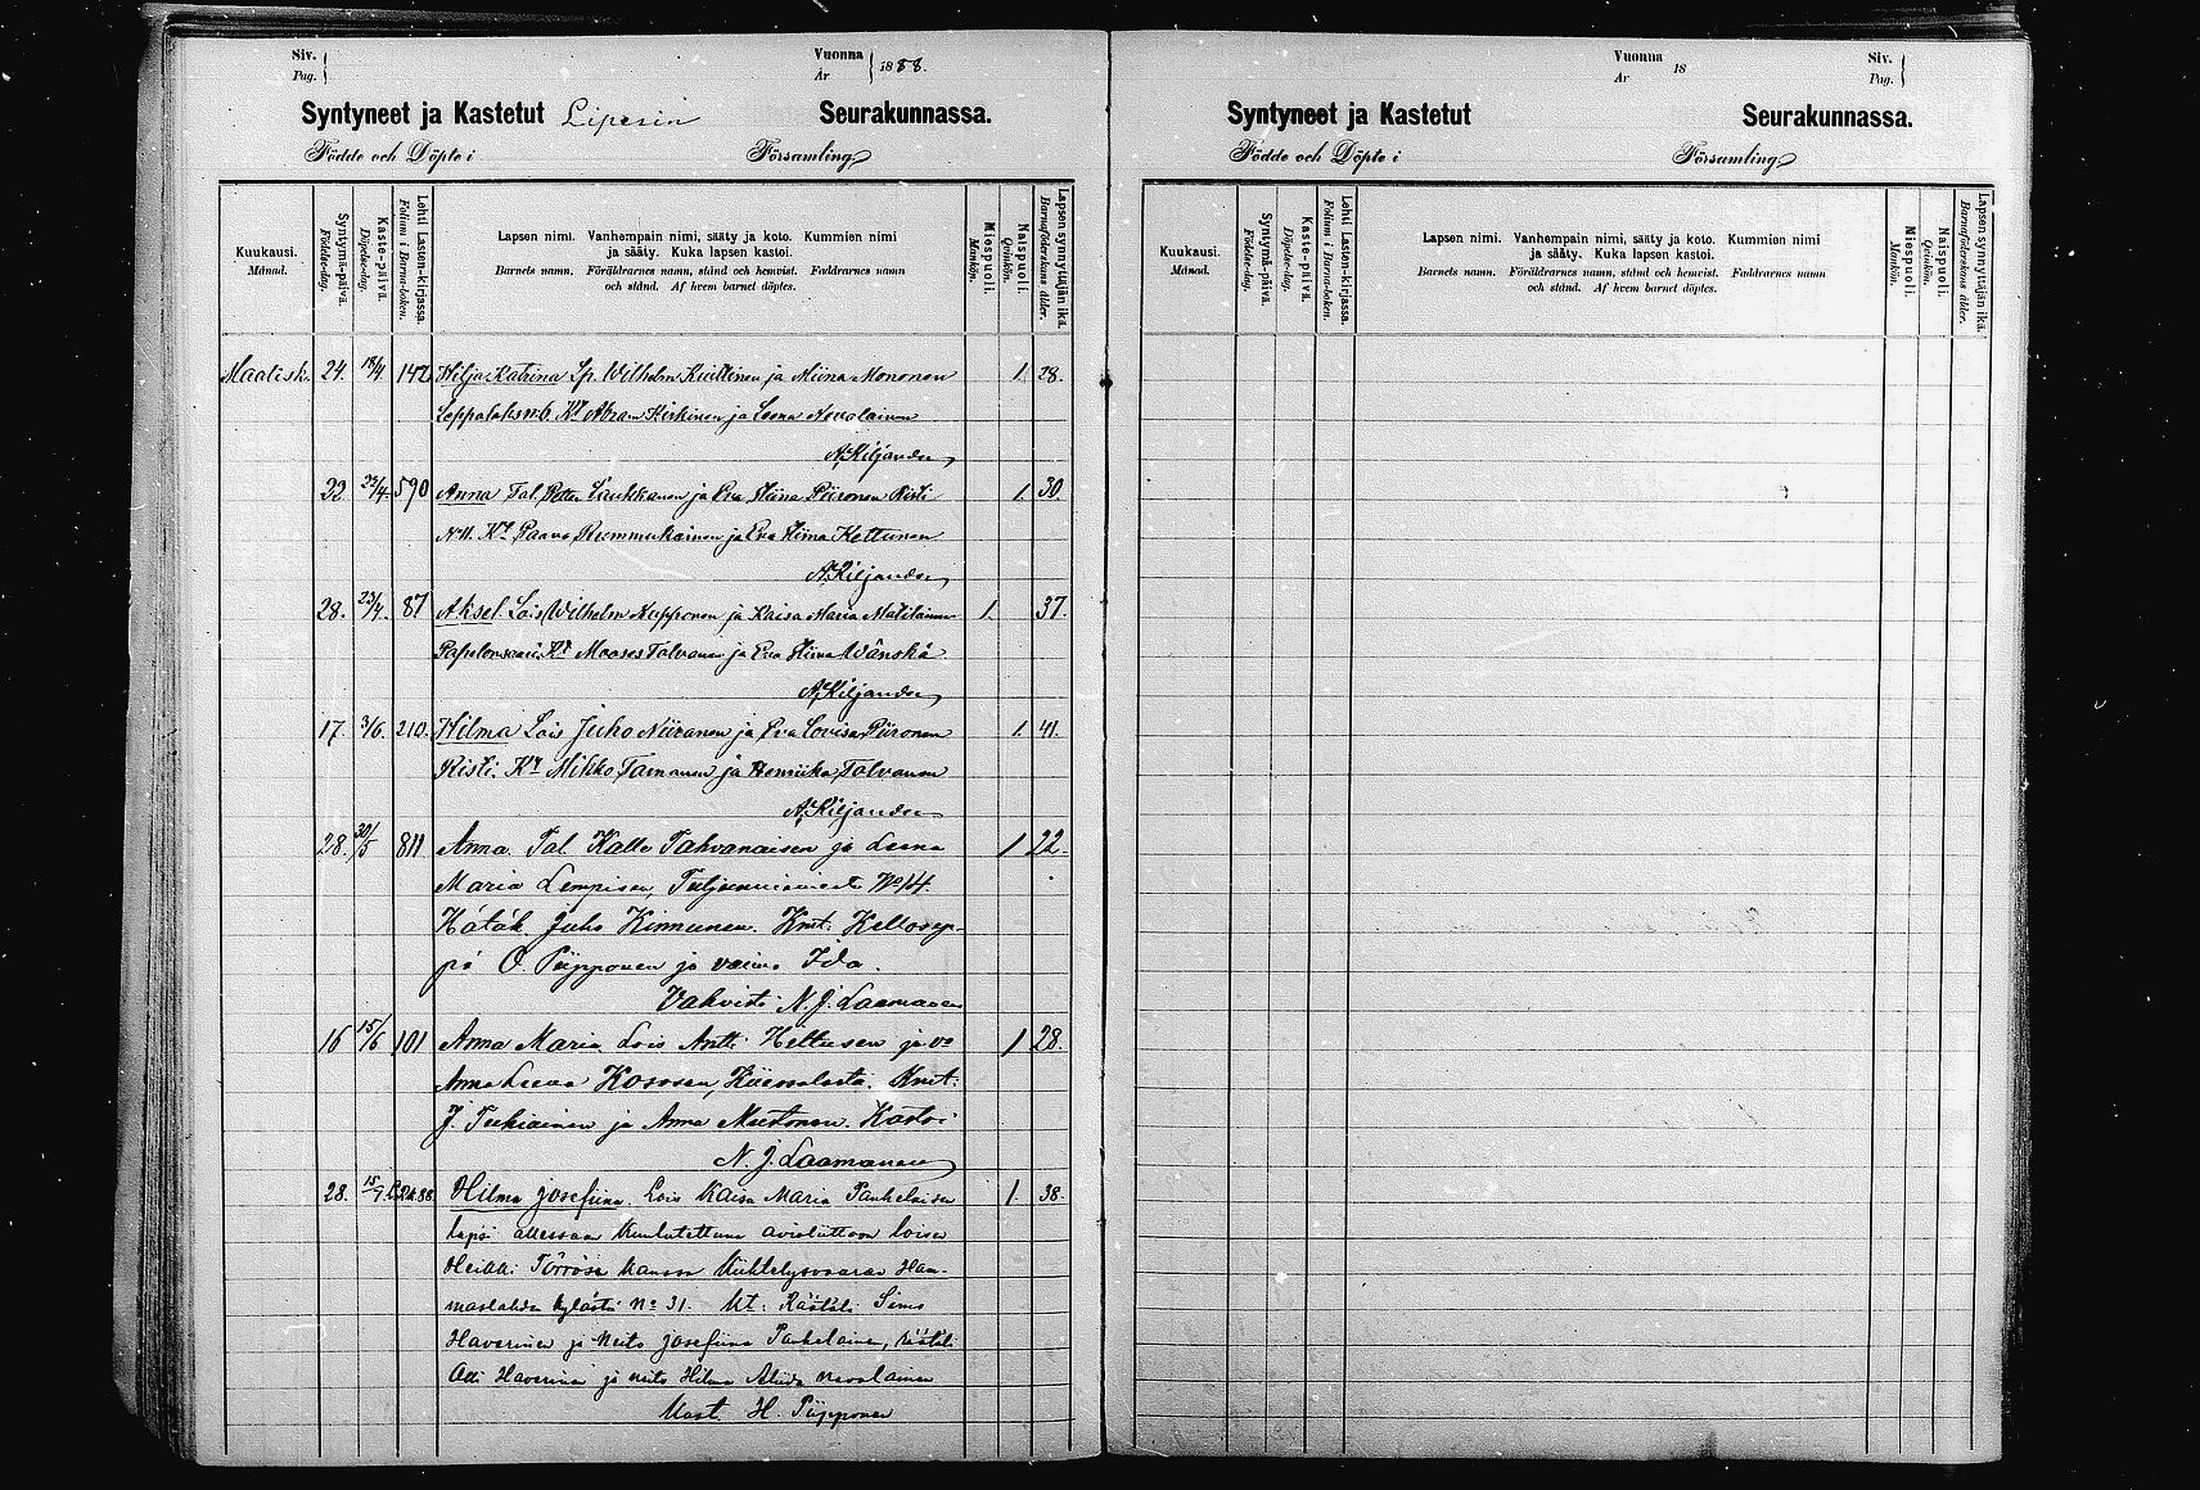 Siv. Vuonna
Pag. År 1888.
Syntyneet ja Kastetut Liperin Seurakunnassa.
Födde och Döpte i Församling
Kuukausi. Månad.
Syntymä-päivä. Födelse-dag.
Kaste-päivä. Döpelse-dag.
Lehti Lasten-kirjassa. Folium i Barna-boken.
Lapsen nimi. Vanhempain nimi, sääty ja koto. Kummien nimi
ja sääty. Kuka lapsen kastoi.
Barnets namn. Föräldrarnes namn, stånd och hemvist. Faddrarnes namn
och stånd. Af hvem barnet döptes.
Miespuoli. Mankön.
Naispuoli. Qvinkön.
Lapsen synnyttäjän ikä. Barnaföderskans ålder.
Maalisk. 24. 18/4 142 Hilja Katrina Lp. Wilhelm Kuittinen ja Miina Mononen 1. 28.
Kt Abram Hirkinen ja Leena Nevalainen
A. Kiljander
22. 590 Anna Tal. Petter Laukkanen ja Eva Stiina Piironen Risti 1. 30
No 11. Kt Paavo Rummukainen ja Eva Stiina Kettunen
A. Kiljander
28. 23/4. 87 Aksel. Lois Wilhelm Nupponen ja Kaisa Maria Matilainen 1. 37.
Papelonsaari. Kt Mooses Tolvanen ja Eva Stiina Wänskä
A. Kiljander
17. 3/6. 210. Hilma Lois Juho Niiranen ja Eva Lovisa Piironen 1. 41.
Risti. Kt Mikko Tamanen ja Henriika Tolvanen
A. Kiljander
28. 30/5 811 Anna. Tal Kalle Tahvanaisen ja Leena 1 22.
Maria Lempisen, No 14.
Hätäk. Juho Kinnunen. Kmt. Kellosep-
pä O. Piipponen ja vaimo Ida.
Vahvisti N. J. Laamanen
16 15/6 101 Anna Maria. Lois Antti Hiltusen ja vo 1 28.
Anna Leena Kososen, Kmt.
J. Tukiainen ja Anna Mustonen. Kastoi
N. J. Laamanen
28. 15/7. Hilma Josefiina. Lois Kaisa Maria Pankelaisen 1. 38.
lapsi ollessaan kuulutettuna avioliittoon loisen
Heikki Törrösen kanssa Kiihtelysvaaran Ham-
maslahden kylästä No 31. Kt: Räätäli Simo
Haverinen ja neito Josefiina Pankelainen, räätäli
Atti Haverinen ja neito Hilma Nevalainen
Kast. H. Piipponen
Vuonna Siv.
År 18 Pag.
Syntyneet ja Kastetut Seurakunnassa.
Födde och Döpte i Församling
Kuukausi. Månad.
Syntymä-päivä. Födelse-dag.
Kaste-päivä. Döpelse-dag.
Lehti Lasten-kirjassa. Folium i Barna-boken.
Lapsen nimi. Vanhempain nimi, sääty ja koto. Kummien nimi
ja sääty. Kuka lapsen kastoi.
Barnets namn. Föräldrarnes namn, stånd och hemvist. Faddrarnes namn
och stånd. Af hvem barnet döptes.
Miespuoli. Mankön.
Naispuoli. Qvinkön.
Lapsen synnyttäjän ikä. Barnaföderskans ålder.